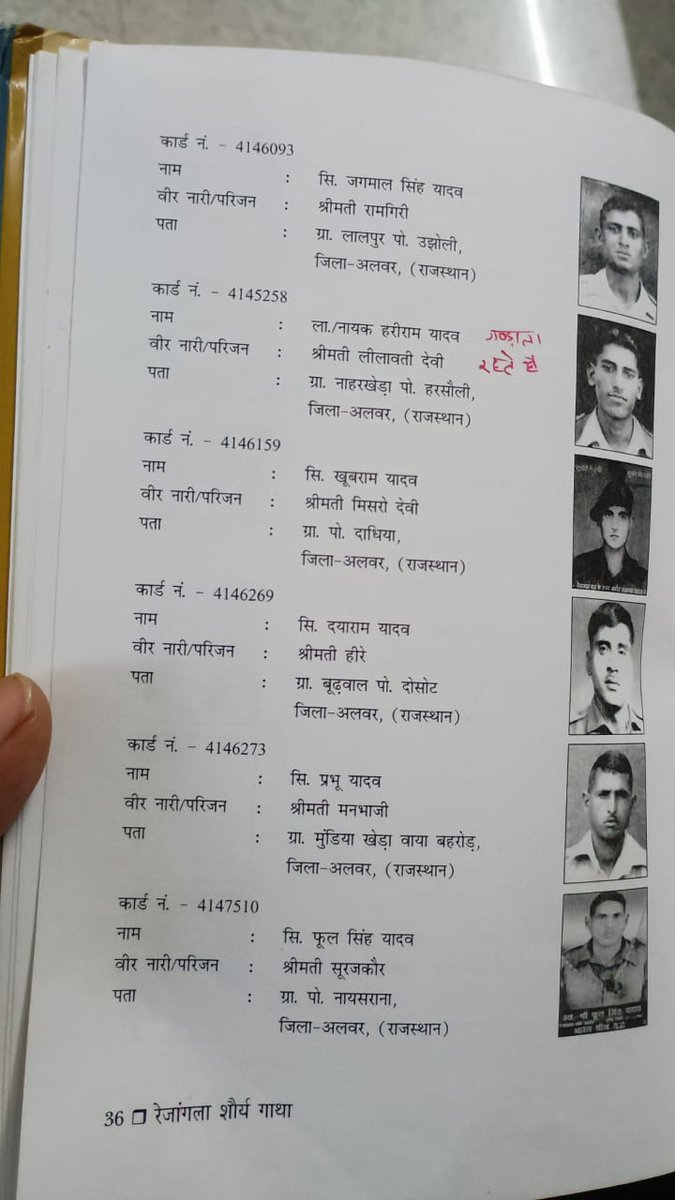 कार्ड नं. - 4146093
नाम : सि. जगमाल सिंह यादव
वीर नारी/परिजन : श्रीमती रामगिरी
पता : ग्रा. लालपुर पो. उझोली,
जिला-अलवर, (राजस्थान)
कार्ड नं. - 4145258
नाम : ला./नायक हरीराम यादव
वीर नारी/परिजन : श्रीमती लीलावती देवी रहते है
पता : ग्रा. नाहरखेड़ा पो. हरसौली,
जिला-अलवर, (राजस्थान)
कार्ड नं. - 4146159
नाम : सि. खूबराम यादव
वीर नारी/परिजन : श्रीमती मिसरो देवी
पता : ग्रा. पो. दाधिया,
जिला-अलवर, (राजस्थान)
कार्ड नं. - 4146269
नाम : सि. दयाराम यादव
वीर नारी/परिजन : श्रीमती हीरे
पता : ग्रा. बूढ़वाल पो. दोसोट
जिला-अलवर, (राजस्थान)
कार्ड नं. - 4146273
नाम : सि. प्रभू यादव
वीर नारी/परिजन : श्रीमती मनभाजी
पता : ग्रा. मुंडिया खेड़ा वाया बहरोड़,
जिला-अलवर, (राजस्थान)
कार्ड नं. - 4147510
नाम : सि. फूल सिंह यादव
वीर नारी/परिजन : श्रीमती सूरजकौर
पता : ग्रा. पो. नायसराना,
जिला-अलवर, (राजस्थान)
स्व. श्री फूल सिंह यादव
भारत चीन युद्ध
36 ❒ रेजांगला शौर्य गाथा